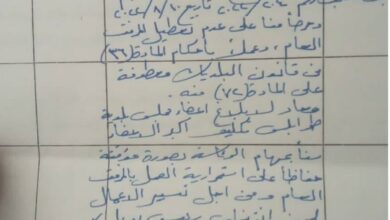 وحرصاً منا على عدم تعطيل المرفق
العام، وعملاً بأحكام المادة (٣٦)
من قانون البلديات معطوفة
على المادة (٧٢) منه.
يعاد لسيبلاغ أعضاء مجلس بلدية
طرابلس تكليف أكبر الأعضاء
سناً بمهام الرئاسة بصورة مؤقتة
حفاظاً على استمرارية العمل بالمرفق
العام ومن اجل تسيير الأعمال